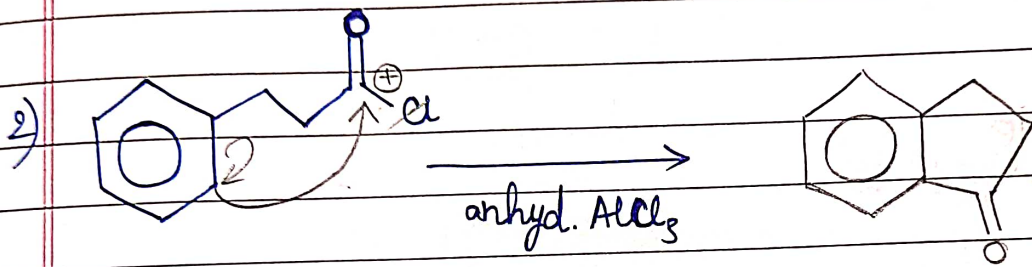 O
⊕
2)
Cl
anhyd. AlCl₃
O